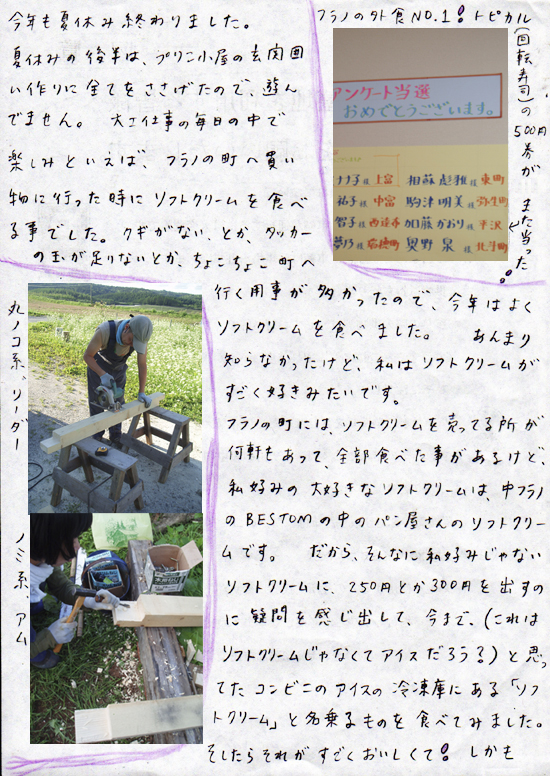 今年も夏休み終わりました。
夏休みの後半は、プリン小屋の玄関囲
い作りに全てをささげたので、遊ん
でません。 大工仕事の毎日の中で
楽しみといえば、フラノの町へ買い
物に行った時にソフトクリームを食べ
る事でした。クギがない、とか、タッカー
の玉が足りないとか、ちょこちょこ町へ
行く用事が多かったので、今年はよく
ソフトクリームを食べました。 あんまり
知らなかったけど、私はソフトクリームが
すごく好きみたいです。
フラノの町には、ソフトクリームを売ってる所が
何軒もあって、全部食べた事があるけど、
私好みの大好きなソフトクリームは、中フラノ
のBESTOMの中のパン屋さんのソフトクリー
ムです。 だから、そんなに私好みじゃない
ソフトクリームに、250円とか300円を出すの
に疑問を感じ出して、今まで、(これは
ソフトクリームじゃなくてアイスだろう?)と思っ
てたコンビニのアイスの冷凍庫にある「ソフ
トクリーム」と名乗るものを食べてみました。
そしたらそれがすごくおいしくて! しかも
フラノの外食NO.1! トピカル
(回転寿司)の500円券が また当った!!
アンケート当選
おめでとうございます。
ナナ子様 上富 相蘇彪雅様 東町
祐子様 中富 駒津明美様 弥生町
智子様 西達布 加藤かおり様 平沢
夢乃様 瑞穂町 奥野泉様 北斗町
丸ノコ系、リーダー
ノミ系、アム